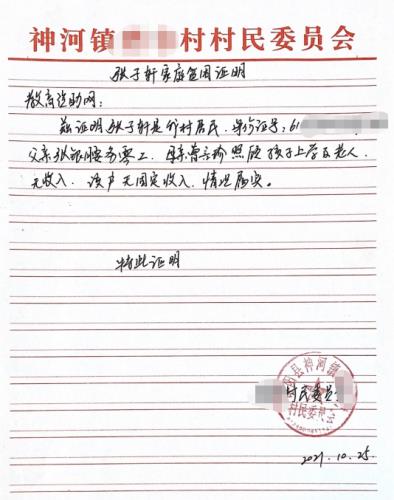 神河镇 村村民委员会
张子轩家庭贫困证明
资助网:
兹证明张子轩是 村居民,身份证号:61
父亲张银 务零工,母亲曾 照顾孩子上学及老人,
无收入,该户无固定收入,情况属实。
特此证明
阳县神河镇
村民委员
村民委
2021.10.25.